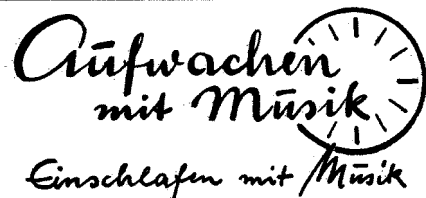 Aufwachen
mit Musik
Einschlafen mit Musik